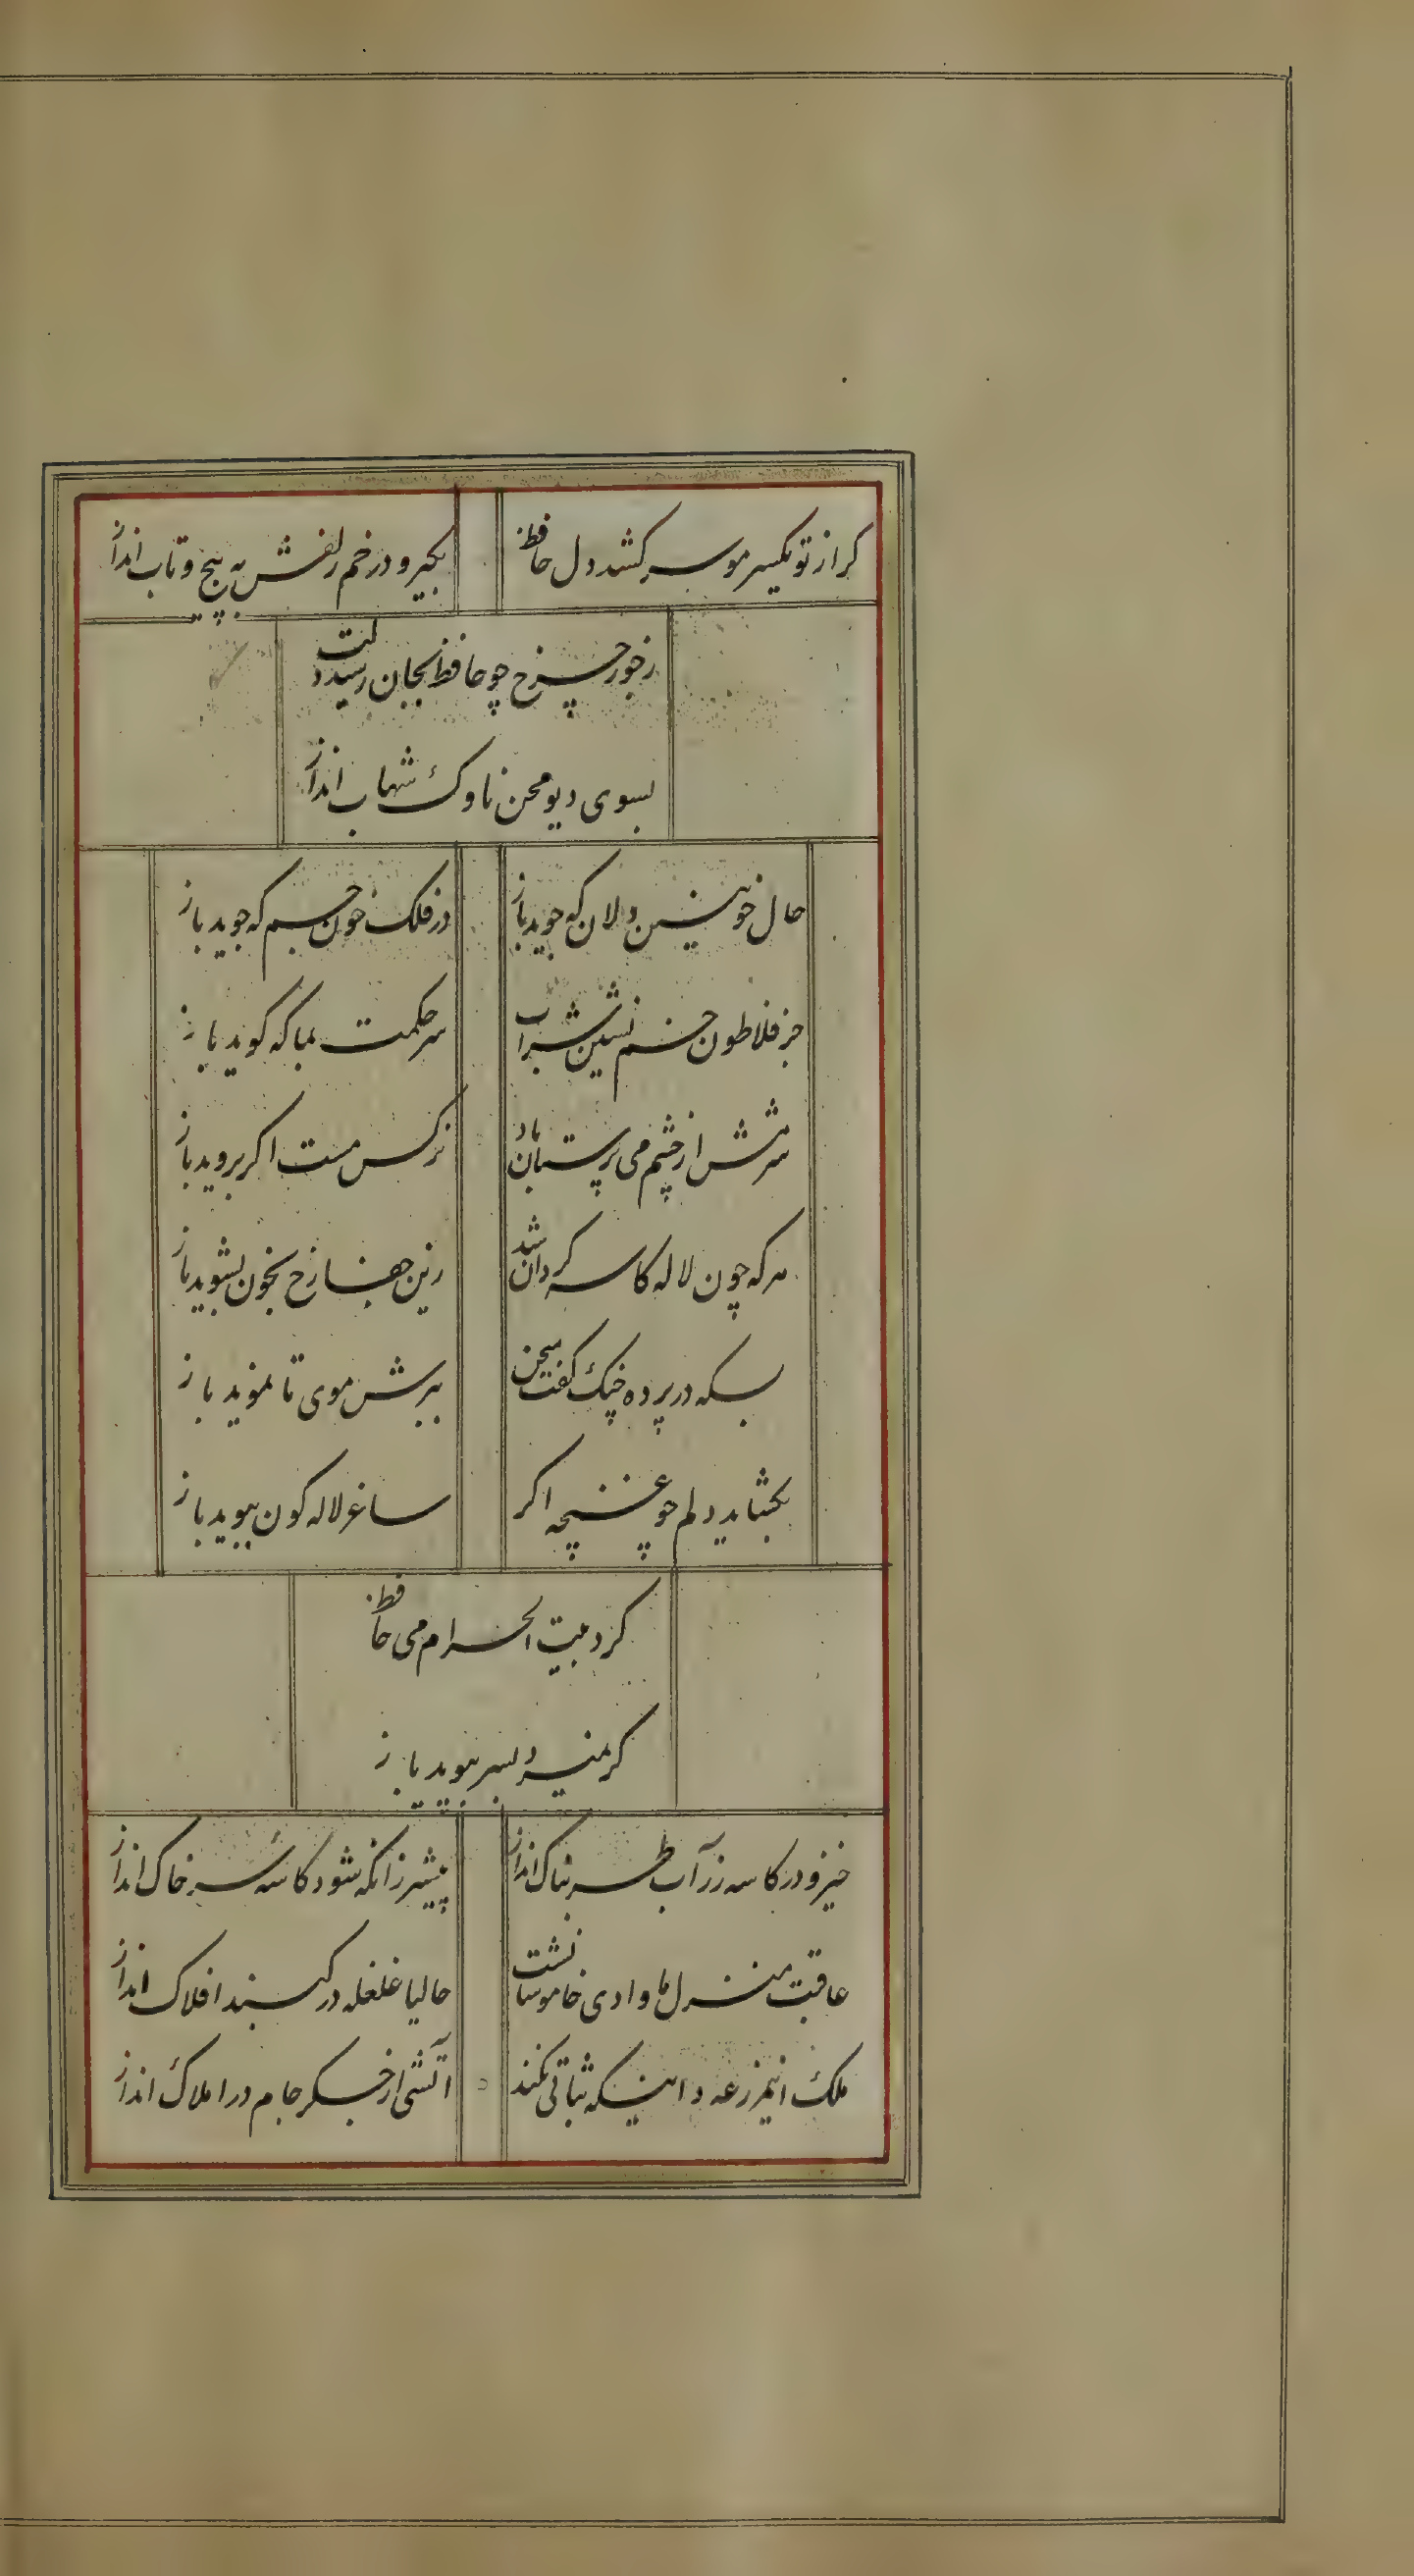 کر از تو یکسر مو سر کشد دل حافظ
بکیر و در خم زلفش به پیچ و تاب انداز
ز جور چرخ چو حافظ بجان رسید دلت
بسوی دیو محن ناوک شهاب انداز
حال خونین دلان که جوید باز
در فلک خون جم که جوید باز
جز فلاطون خم نشین شراب
سر حکمت بما که کوید باز
شرمش از چشم می پرستان باد
نرکس مست اکر بروید باز
هر که چون لاله کاسه کردان شد
زین جفا رخ بخون بشوید باز
بسکه در پرده چنک کفت سخن
ببرش موی تا نموید باز
بکشاید دلم چو غنچه اکر
ساغر لاله کون ببوید باز
کرد بیت الحرام می حافظ
کر نمیرد بسر بپوید باز
خیز و در کاسه زر آب طربناک انداز
پیشتر زانکه شود کاسهٔ سر خاک انداز
عاقبت منزل ما وادی خاموشانست
حالیا غلغله در کنبد افلاک انداز
ملک این مزرعه دانی که ثباتی نکند
آتشی از جکر جام در املاک انداز